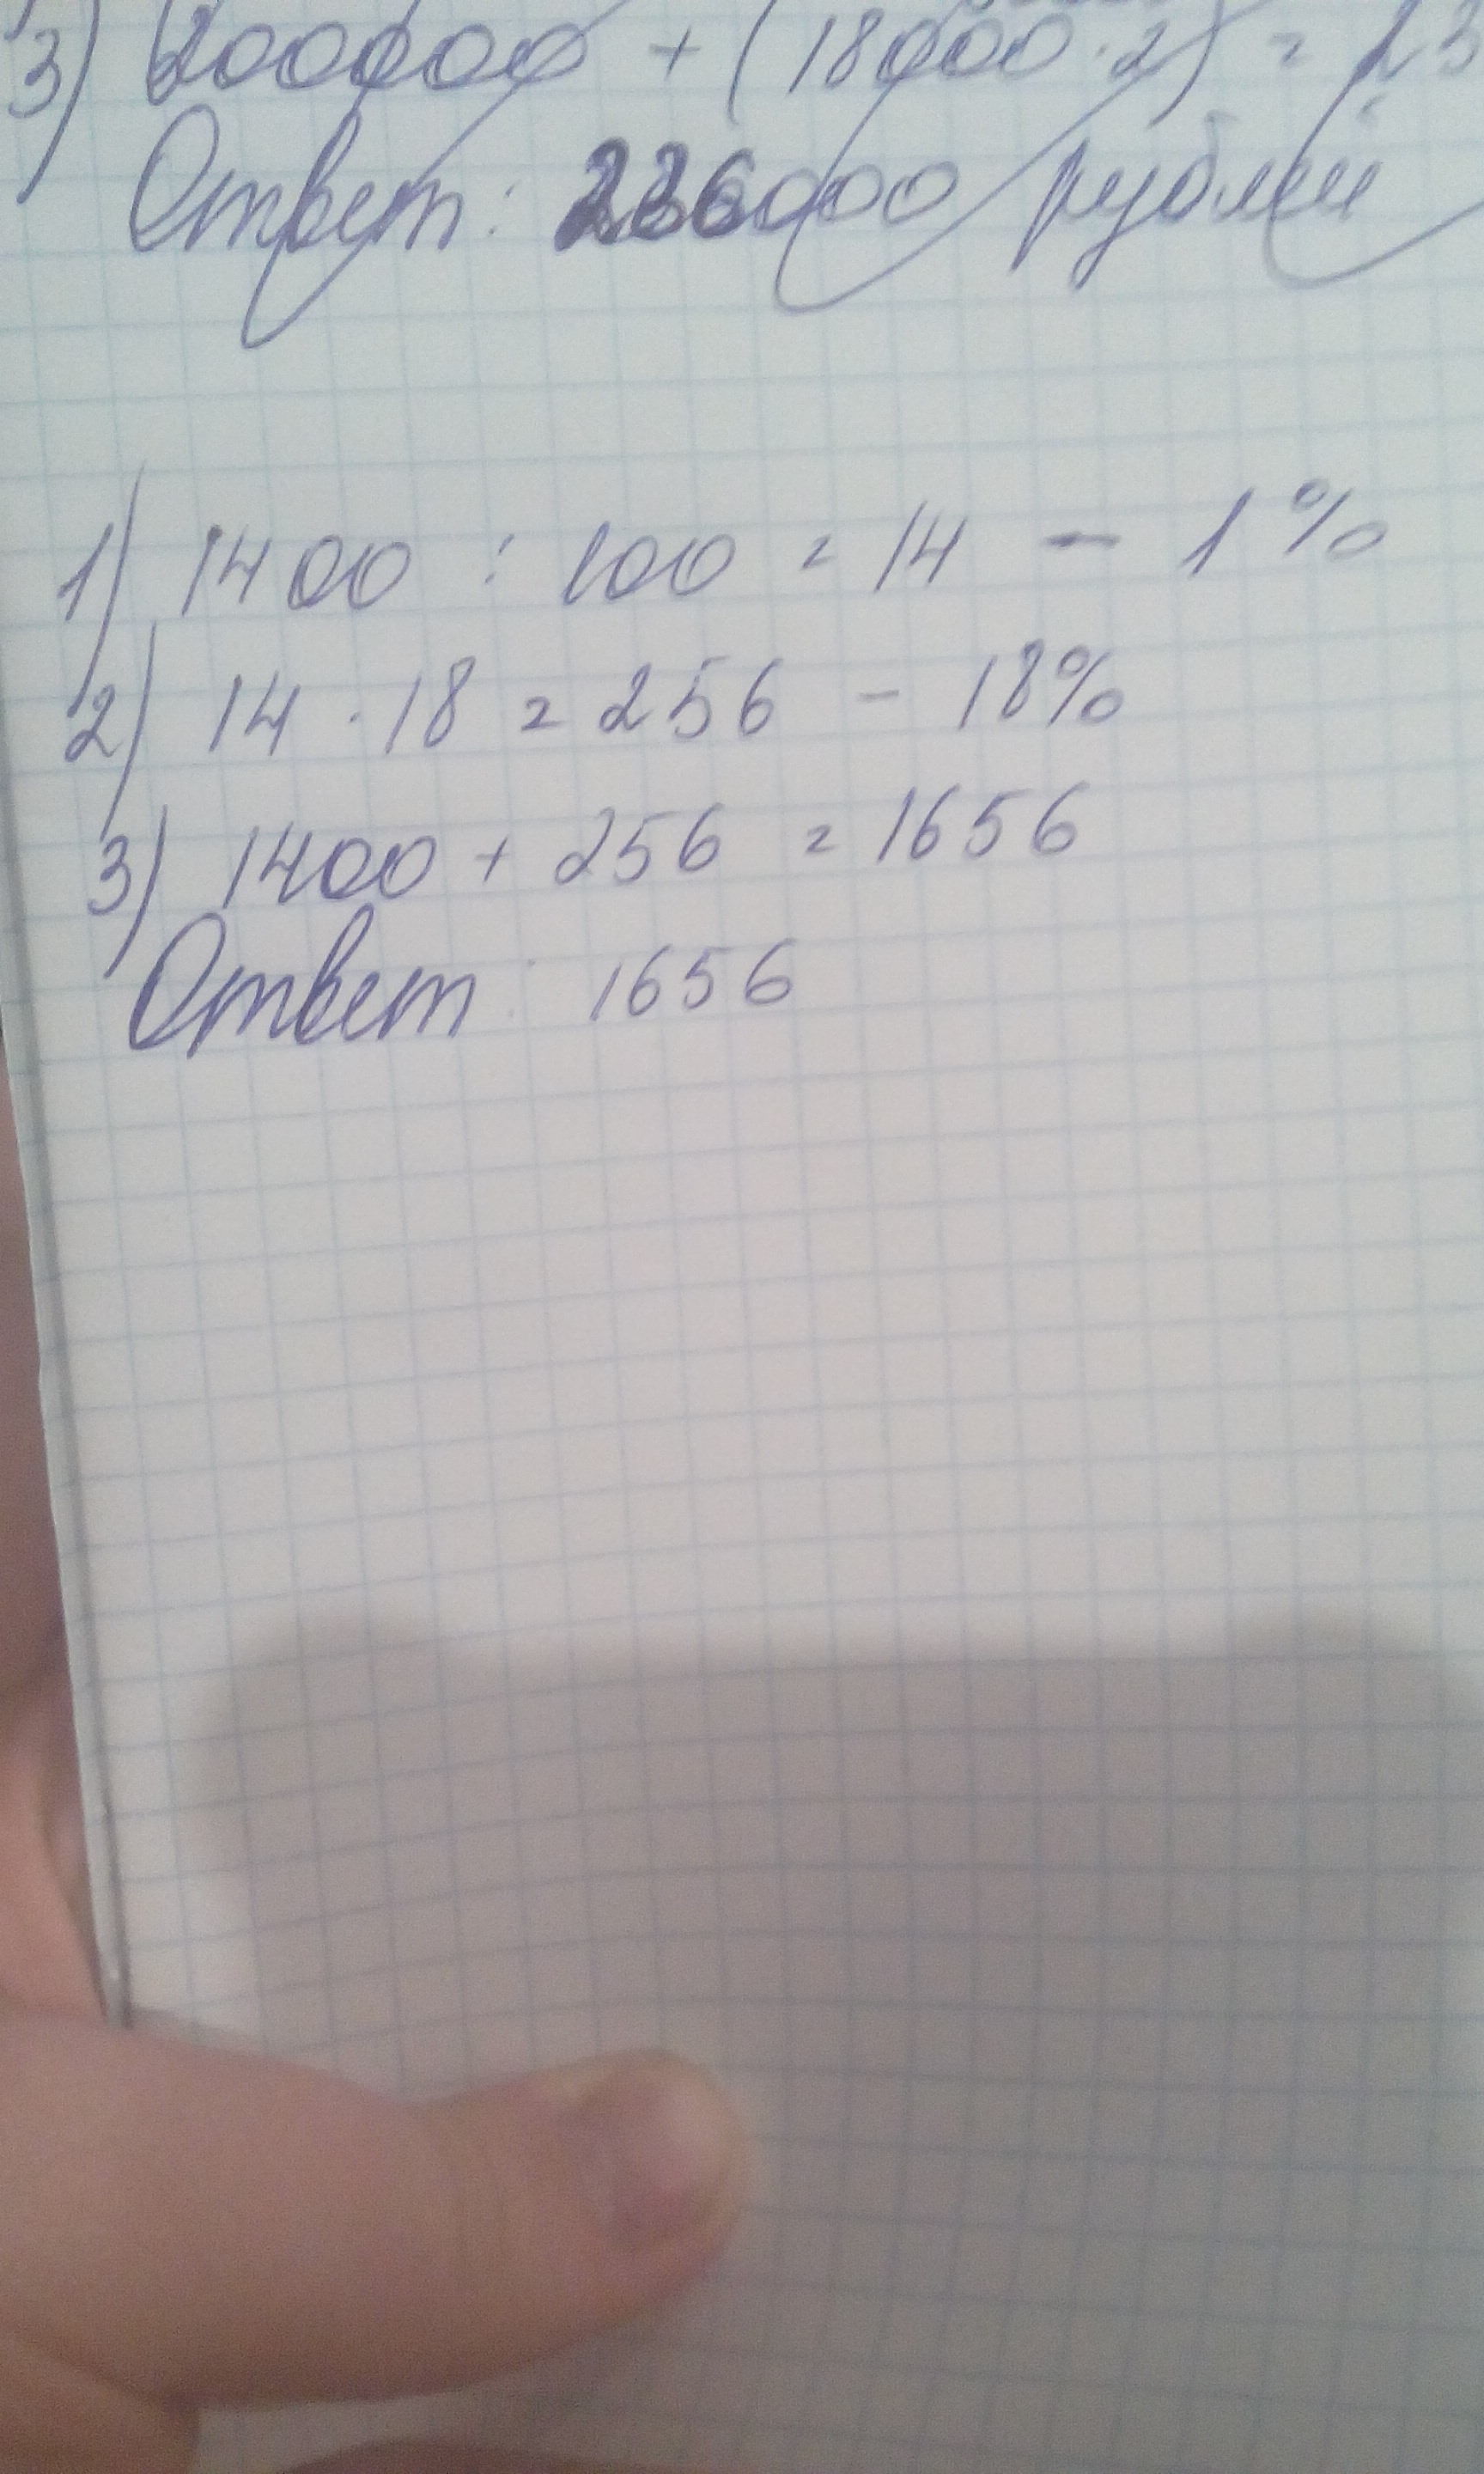 3) 200000 + (18000 · 2) = 23
Ответ: 236000 рублей
1) 1400 : 100 = 14 - 1%
2) 14 · 18 = 256 - 18%
3) 1400 + 256 = 1656
Ответ: 1656